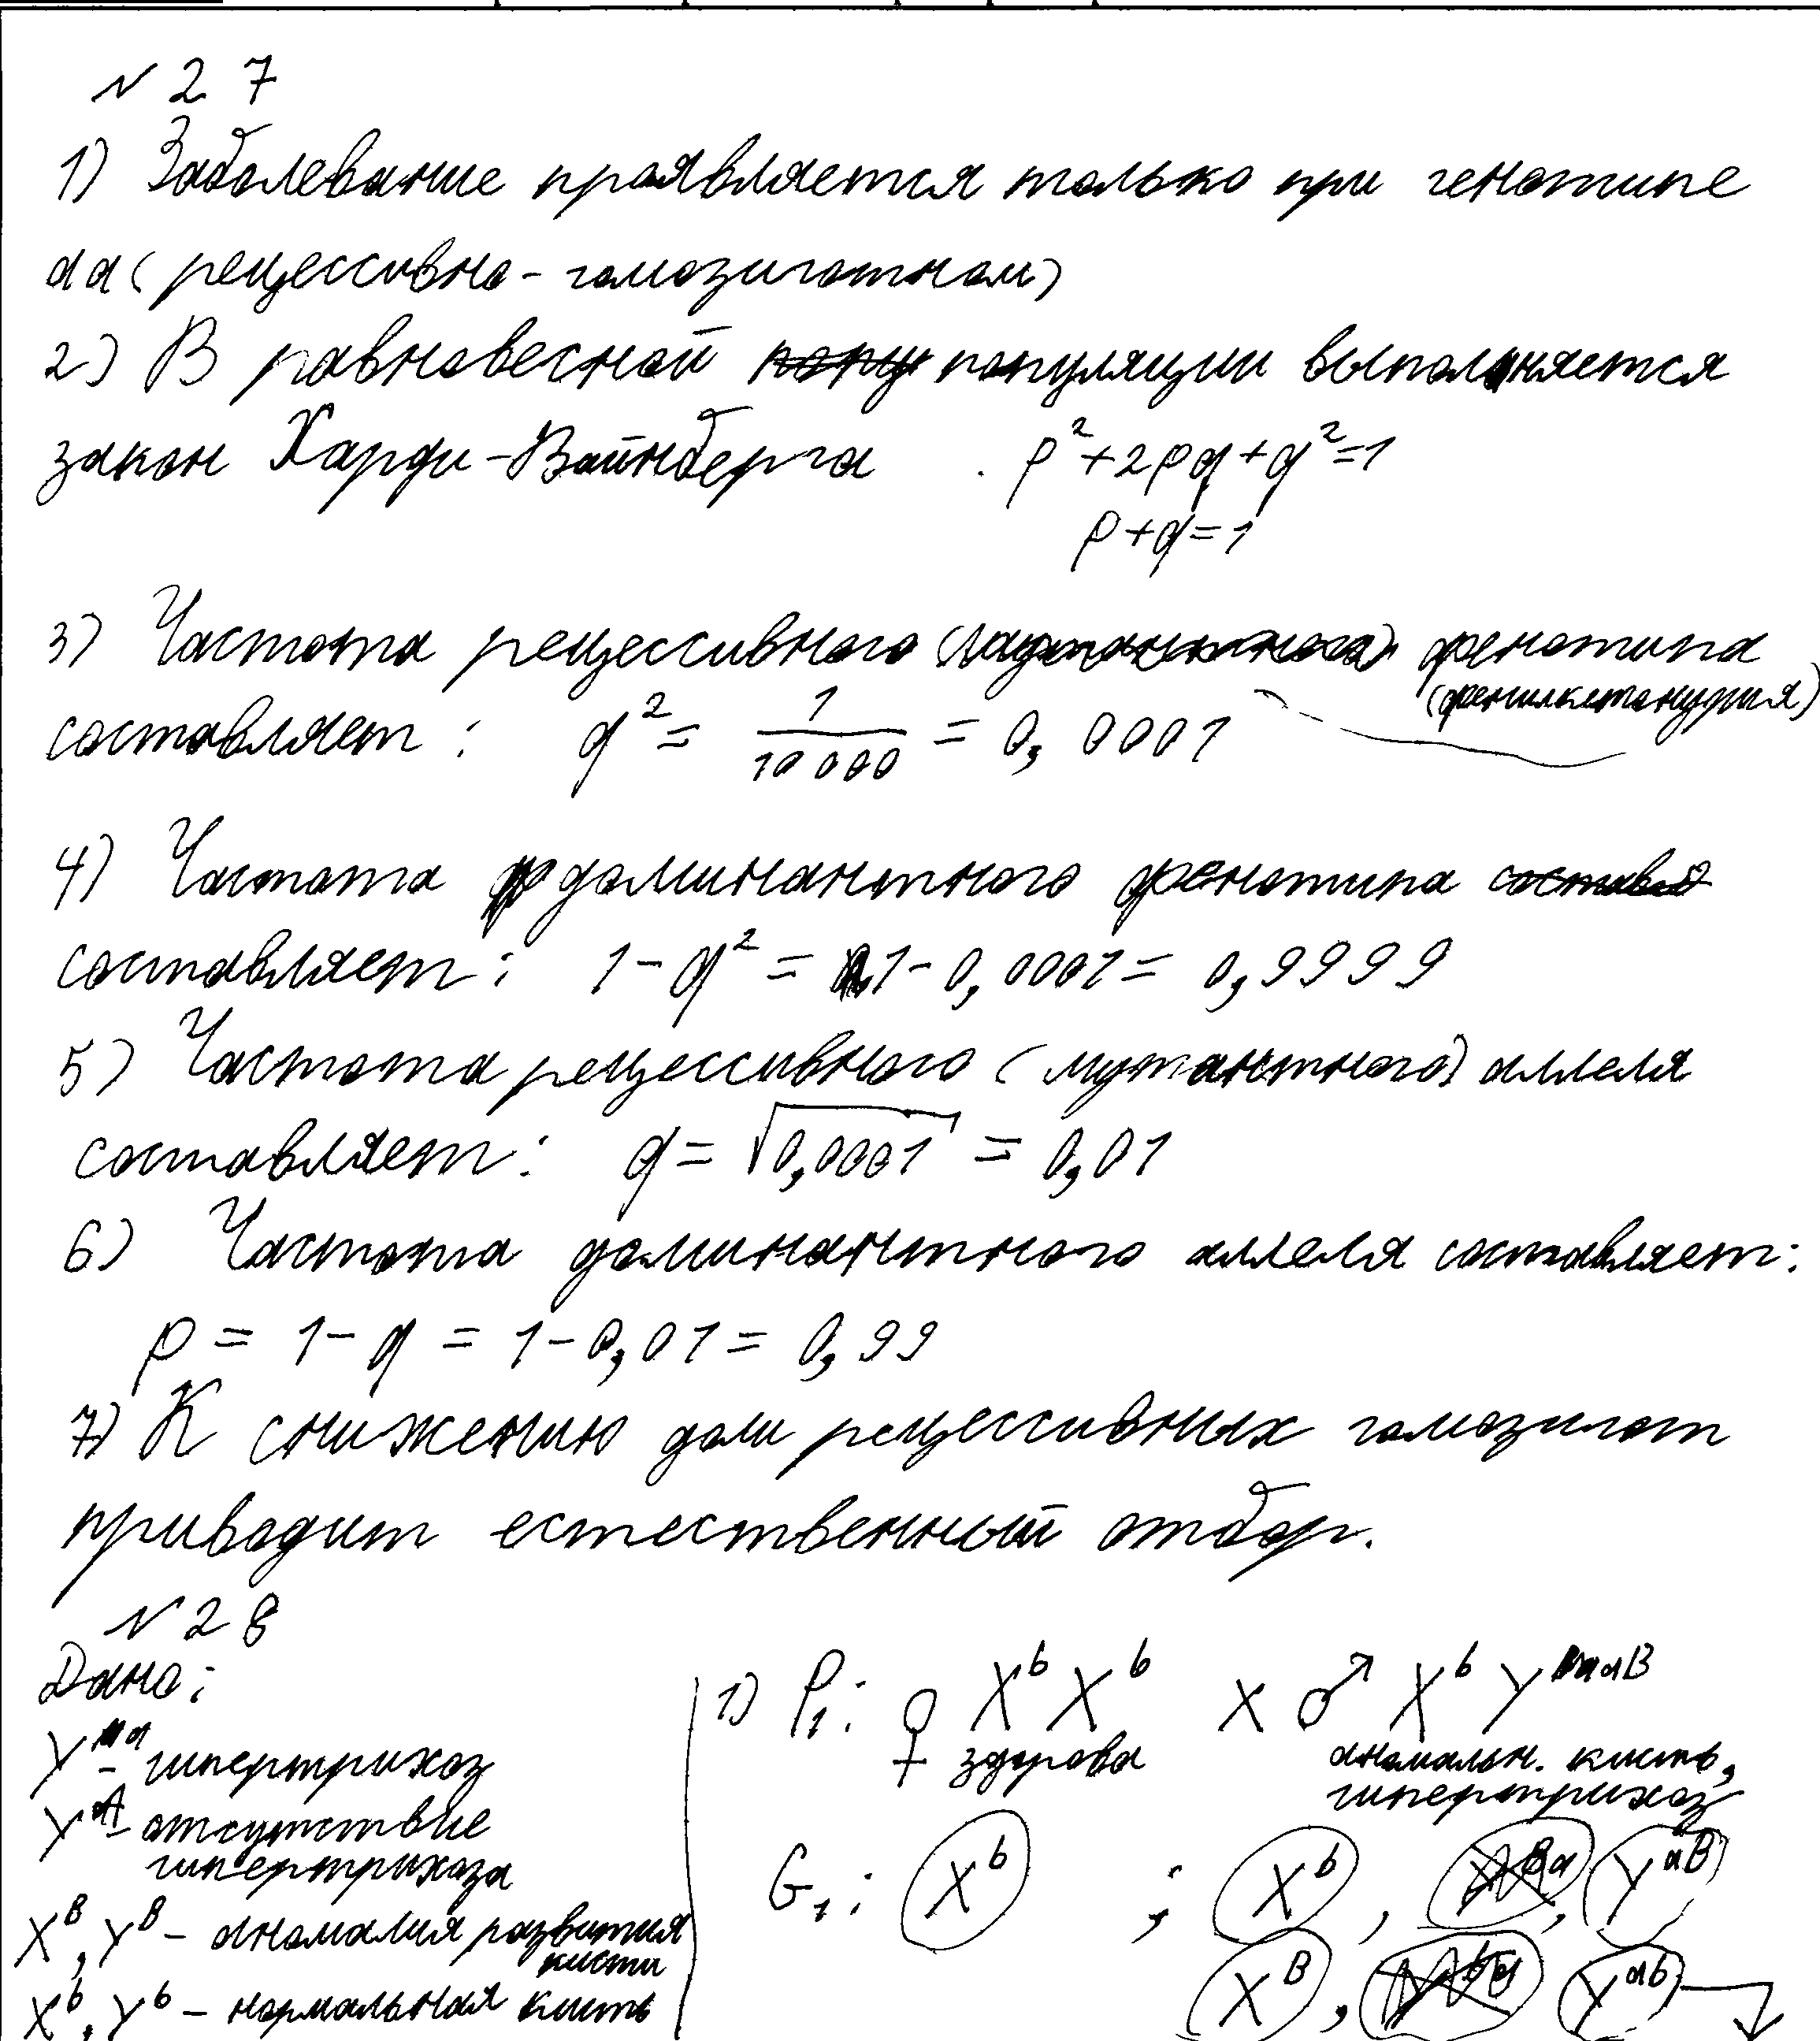 N 27
1) Заболевание проявляется только при генотипе
aa (рецессивно-гомозиготном)
2) В равновесной популяции выполняется
закон Харди-Вайнберга p²+2pq+q²=1
p+q=1
3) Частота рецессивного фенотипа
(фенилкетонурия)
составляет: q² = 1/10 000 = 0,0001
4) Частота доминантного фенотипа
составляет: 1-q² = 1-0,0001 = 0,9999
5) Частота рецессивного (мутантного) аллеля
составляет: q = √0,0001 = 0,01
6) Частота доминантного аллеля составляет:
p = 1-q = 1-0,01 = 0,99
7) К снижению доли рецессивных гомозигот
приводит естественный отбор.
N 28
Дано:
Yᵃ - гипертрихоз
Yᴬ - отсутствие
гипертрихоза
Xᴮ, Yᴮ - аномалия развития
кисти
Xᵇ, Yᵇ - нормальная кисть
1) P₁: ♀ Xᵇ Xᵇ X ♂ Xᵇ Yᵃᴮ
здорова аномальн. кисть,
гипертрихоз
G₁: Xᵇ ; Xᵇ, Yᵃᴮ
Xᴮ, Yᵃᵇ